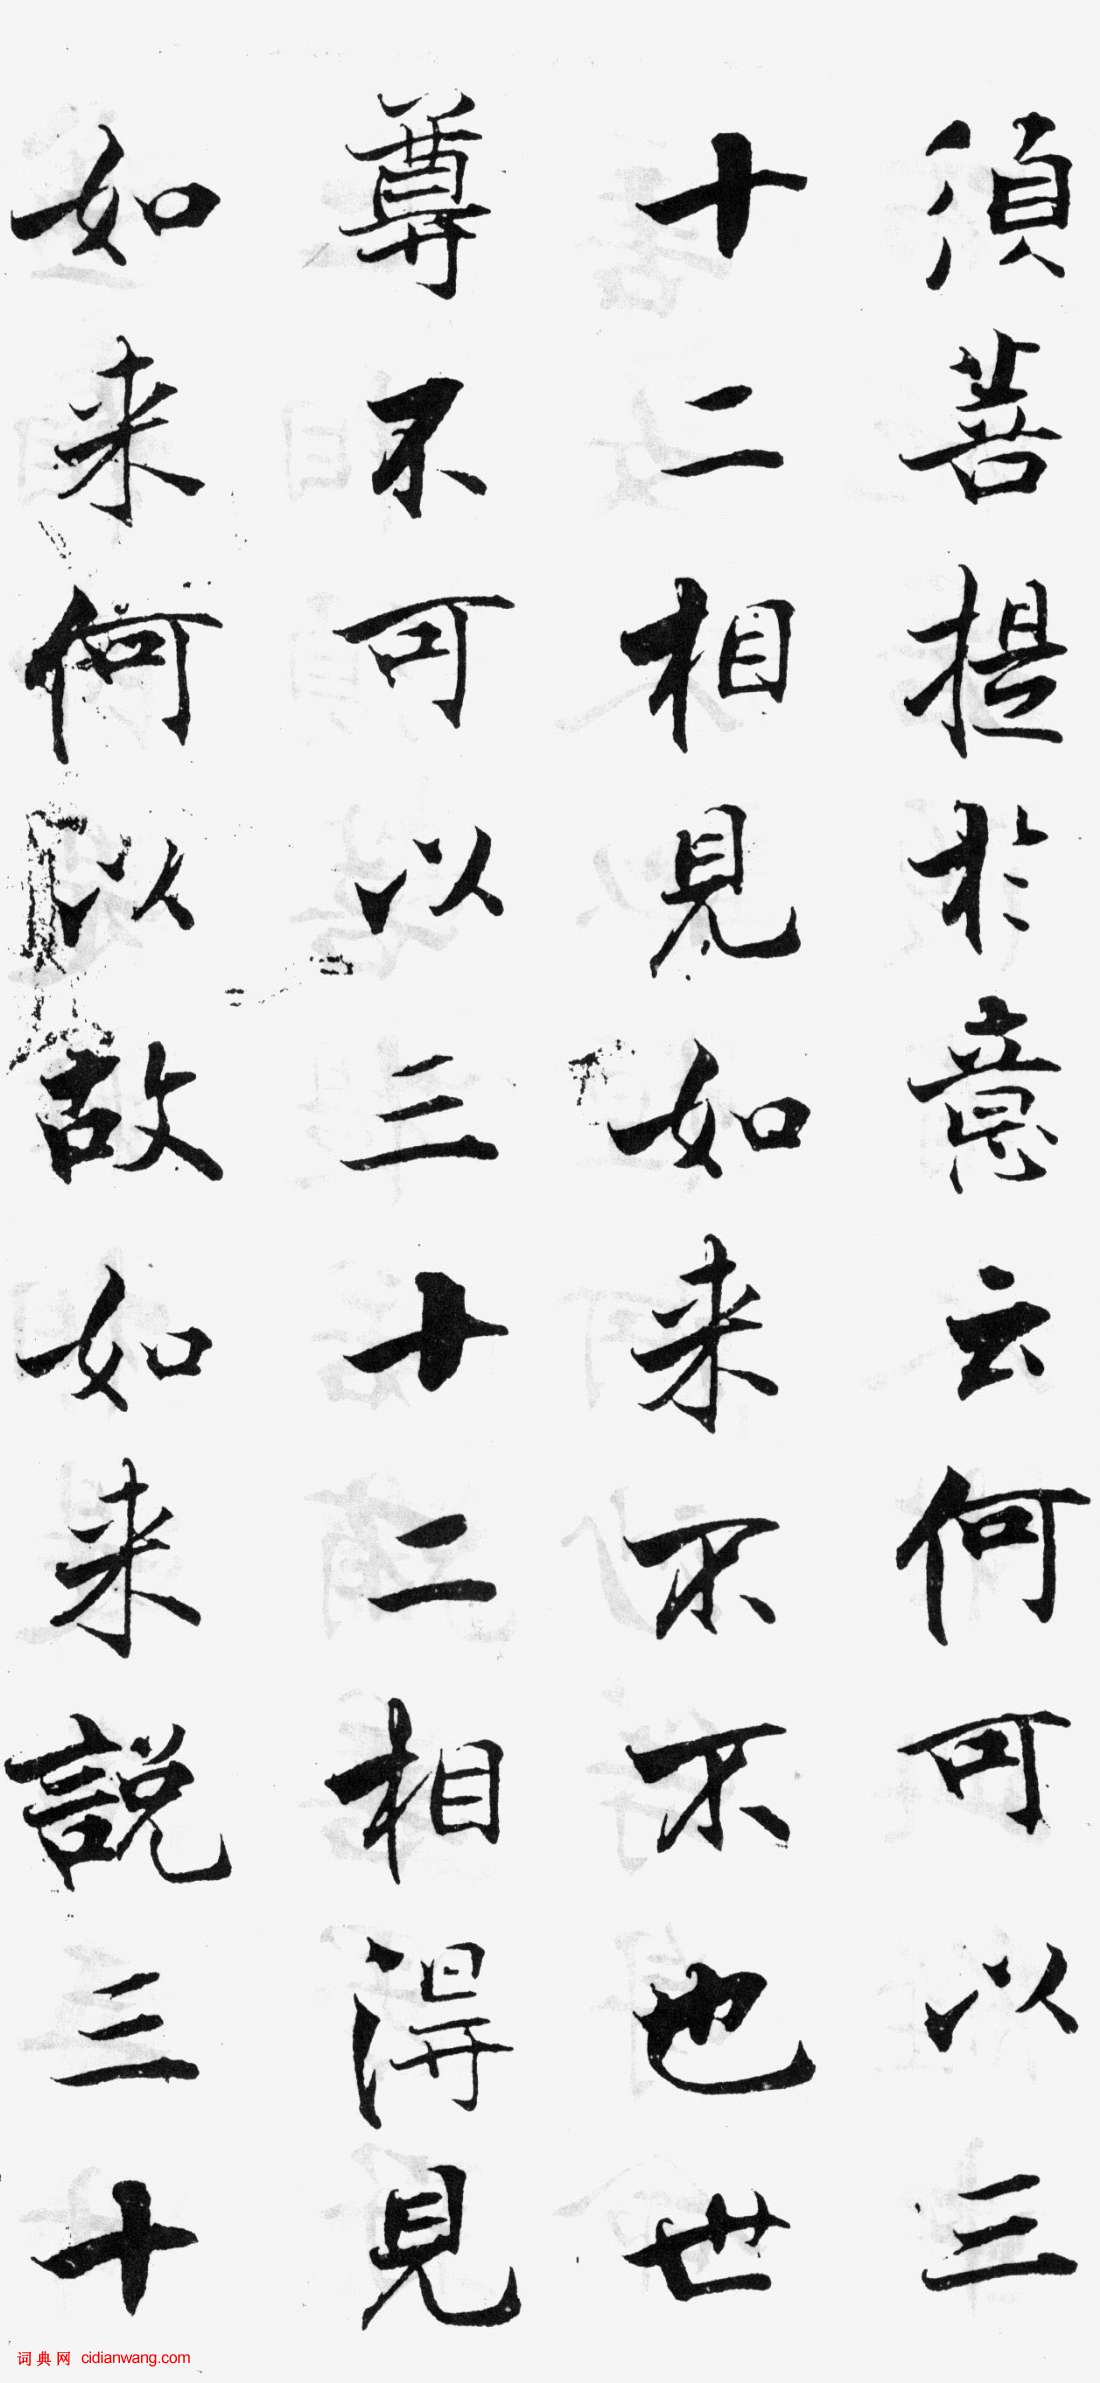 須菩提於意云何可以三
十二相見如来不不也世
尊不可以三十二相得見
如来何以故如来說三十
词典网 cidianwang.com